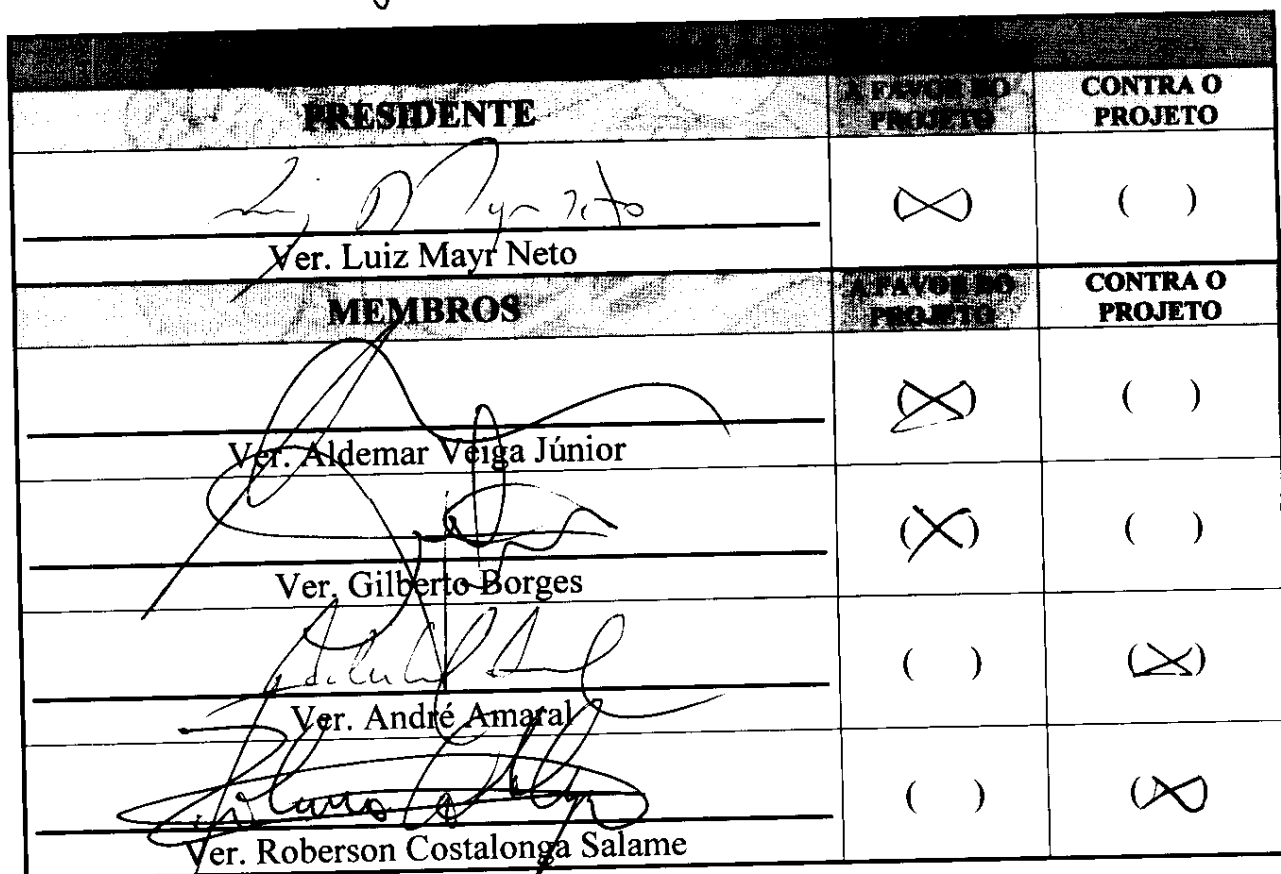 PRESIDENTE
A FAVOR DO PROJETO
CONTRA O PROJETO
(X)
( )
Ver. Luiz Mayr Neto
MEMBROS
A FAVOR DO PROJETO
CONTRA O PROJETO
(X)
( )
Ver. Aldemar Veiga Júnior
(X)
( )
Ver. Gilberto Borges
( )
(X)
Ver. André Amaral
( )
(X)
Ver. Roberson Costalonga Salame